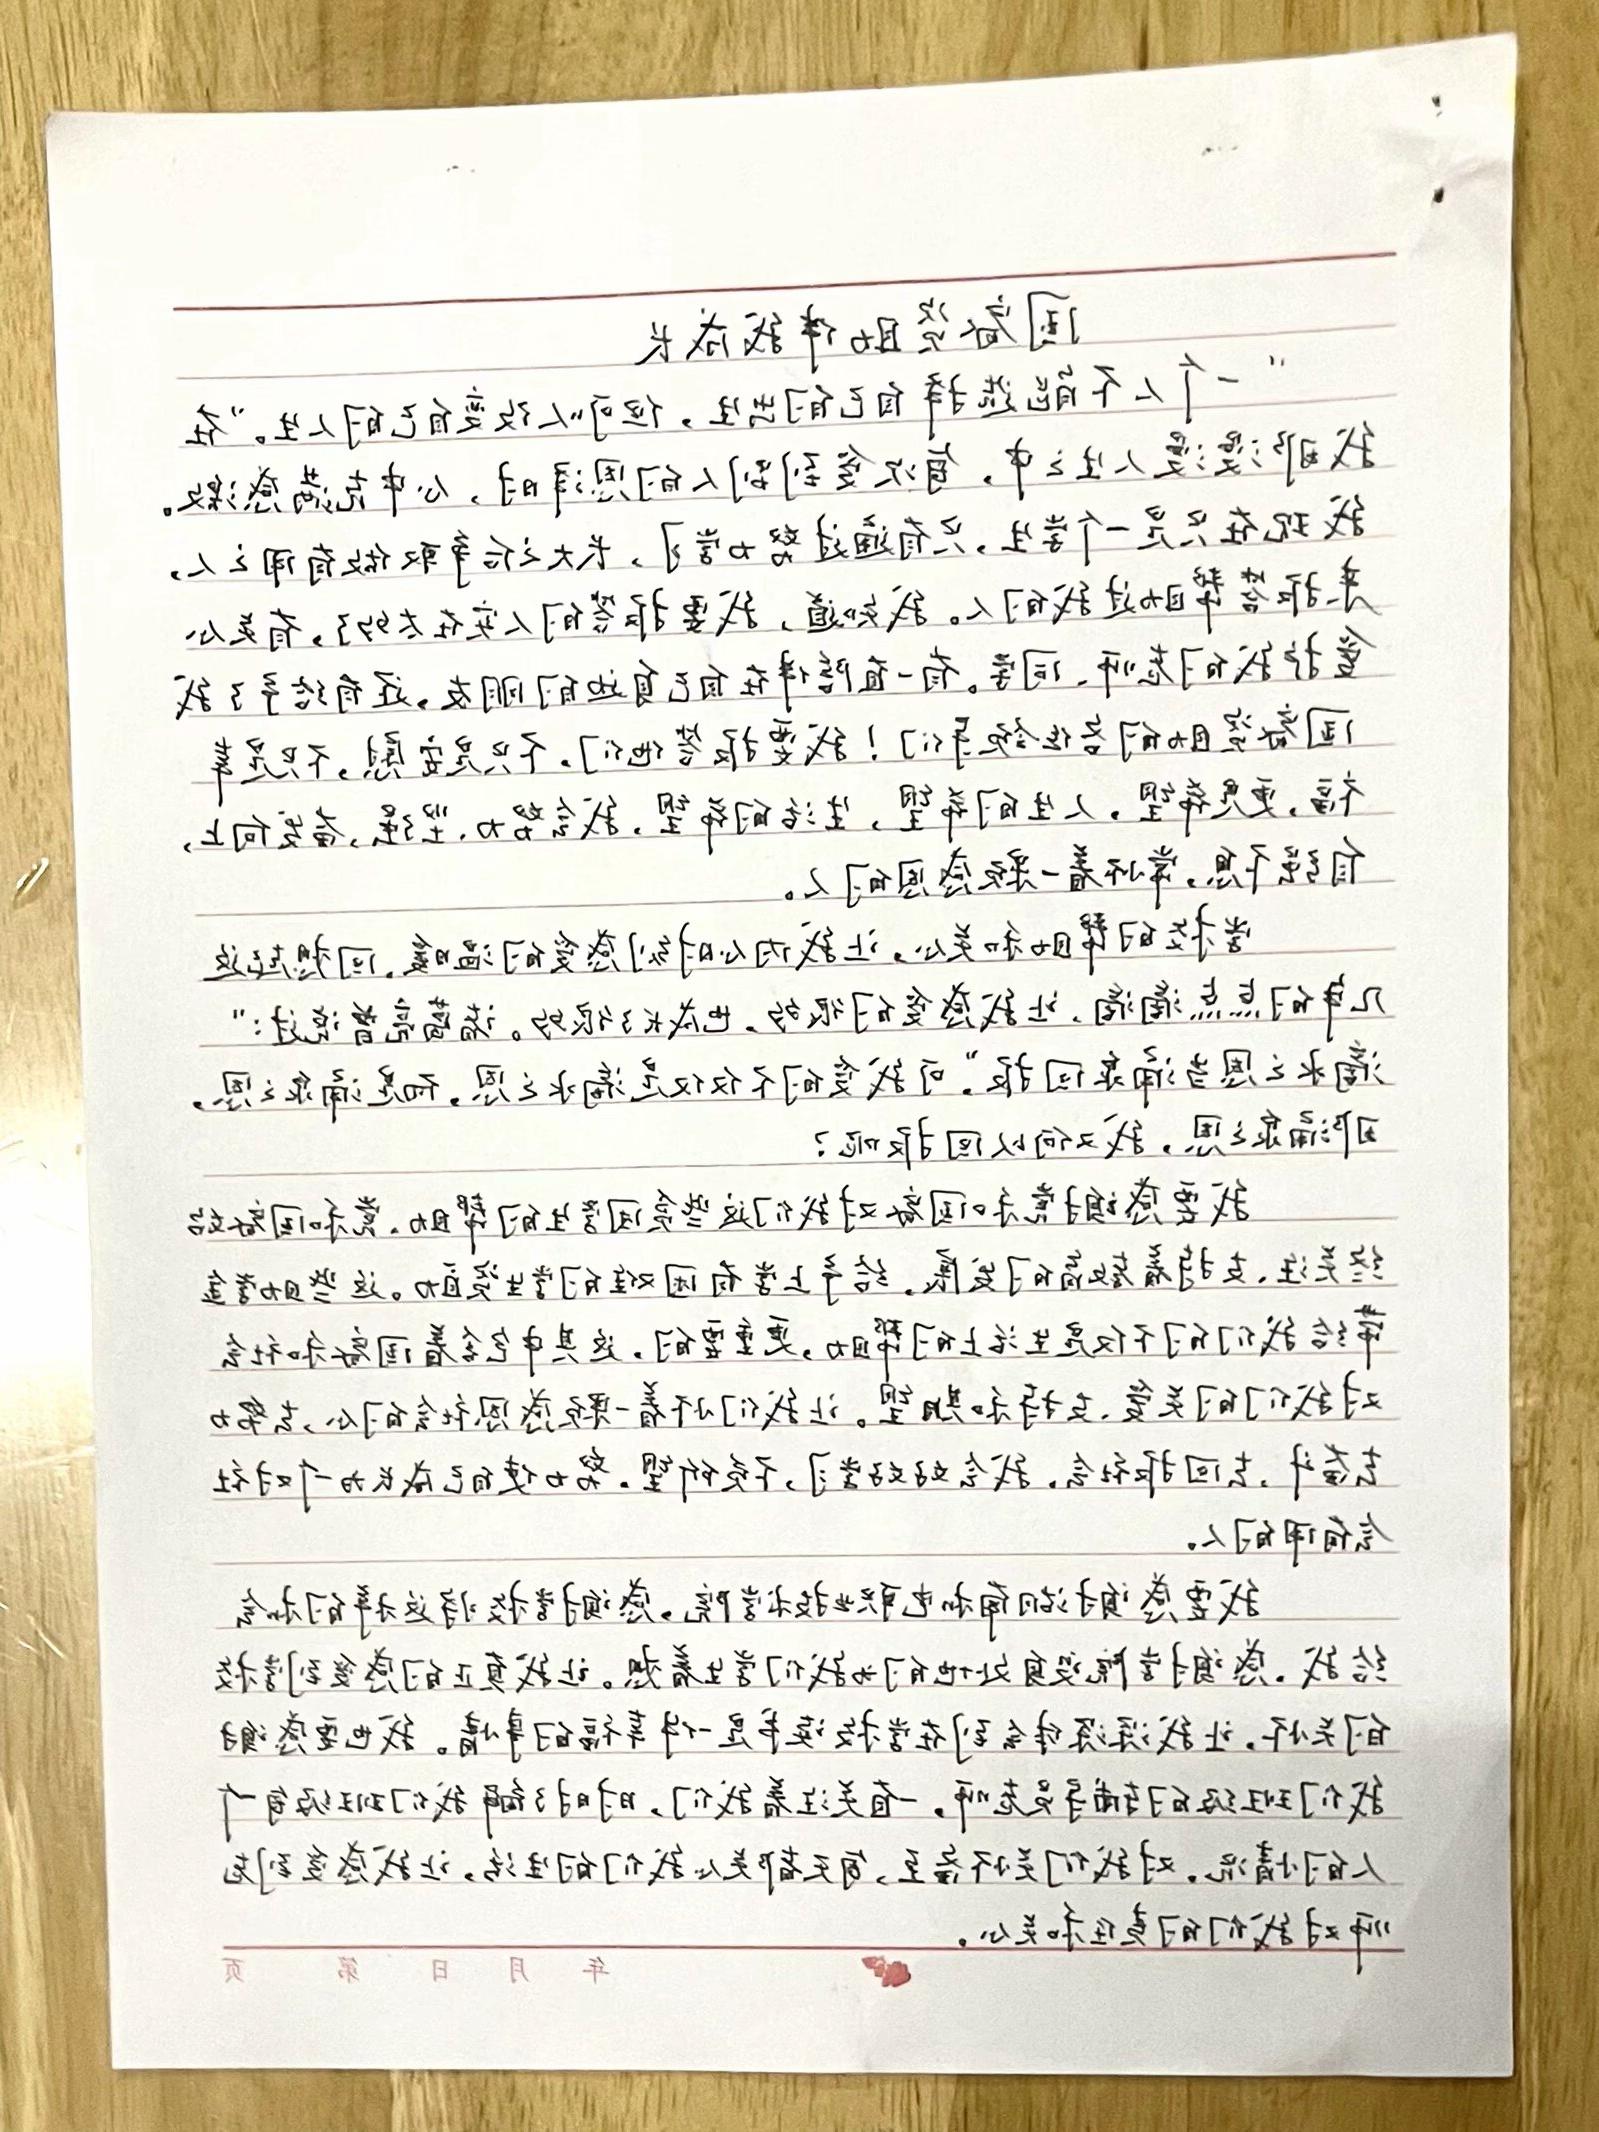 国家资助伴我成长
“一个人不能选择自己的出生，但可以改变自己的人生。”在
我那漫漫人生之中，每次受到别人的恩泽时，心中充满感激。
我现在只是一个学生，只有通过努力学习，长大之后争取做有用之人，
来报答帮助过我的人。我知道，我要报答的人实在太多了，有关心
爱护我的老师、同学。有一直陪伴在自己身边的朋友，还有给予了我
国家资助的各位领导们！我要报答他们，不只是安慰，不只是幸
福，更是希望，人生的希望，生活的希望，我会努力、坚强，奋发向上，
自强不息，常怀着一颗感恩的人。
学校的帮助和关心，让我内心时刻感受的温暖，回想起这
几年的点点滴滴，让我感受的很多，也成长了很多。诸葛亮曾说过：“
滴水之恩当涌泉回报”可我受的不仅仅是滴水之恩，而是涌泉之恩，
那涌泉之恩，我又何以回报呢？
我要感谢党和国家对我们这些贫困学生的帮助、党和国家始
终关注、支持着教育的发展，给予上学有困难的学生资助。这些助学金
带给我们的不仅是生活上的帮助，更重要的，这其中包含着国家和社会
对我们的关爱、支持和期望。让我们怀着一颗感恩社会的心，去努力
去奋斗，去回报社会，我会好好学习，不负所望。努力使自己成长为一个对社
会有用的人。
我要感谢湖南机电职业技术学院，感谢学校将这样的机会
给我，感谢学院设身处地的为我们学生着想。让我真正的感受到学校
的关怀，让我深深体会到在学校读书是一件幸福的事情。我也要感谢
我们班级的辅导员老师，一直关注着我们，时时了解我们班级每一个
人的情况，对我们关怀备至，每天都关心我们的生活，让我感受到老
师对我们的责任和关心。
年 月 日 第 页